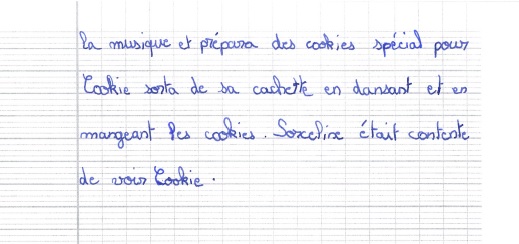 la musique et prépara des cookies spécial pour
Cookie sorta de sa cachette en dansant et en
mangeant les cookies. Sorceline était contente
de voir Cookie.